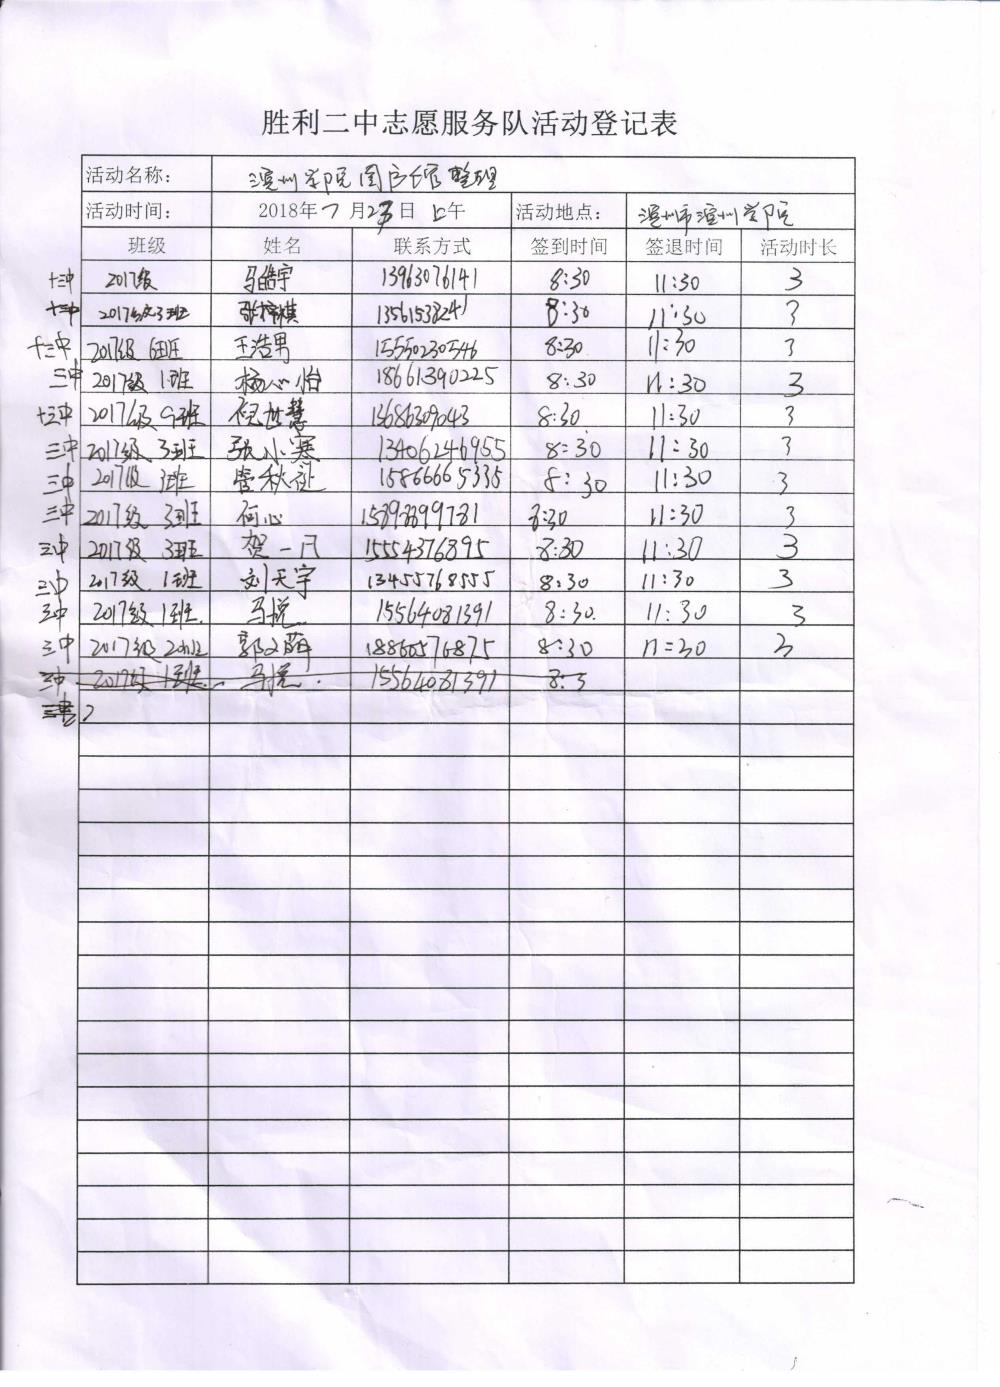 胜利二中志愿服务队活动登记表
活动名称： 滨州学院图书馆整理
活动时间： 2018年7月25日上午 活动地点： 滨州市滨州学院
班级 姓名 联系方式 签到时间 签退时间 活动时长
十三中 2017级 马皓宇 13963076141 8:30 11:30 3
十三中 2017级3班 张梓棋 13561533241 8:30 11:30 3
十三中 2017级 6班 王浩男 15550230546 8:30 11:30 3
三中 2017级 1班 杨心怡 18661390225 8:30 11:30 3
十三中 2017级9班 倪世慧 13686309043 8:30 11:30 3
三中 2017级 3班 张小寒 13406246955 8:30 11:30 3
三中 2017级 3班 管秋 15866665335 8:30 11:30 3
三中 2017级 3班 何心 8:30 11:30 3
三中 2017级 3班 贺一凡 15554376895 8:30 11:30 3
三中 2017级 1班 刘天宇 13455768555 8:30 11:30 3
三中 2017级 1班. 马悦 15564081391 8:30. 11:30 3
三中 2017级 20班 郭文萌 18860576875 8:30 11:30 3
三中 2017级 1班 马悦. 15564081391 8:3